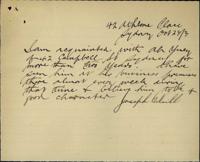 42 Upsere Clare
Sydney Oct 29/3
I am acquainted with Ah Yney
of 42 Campbell St Sydney for
more than two years. I have
seen him at his business premises
there almost every week during
that time & believe him to be of
good character
Joseph